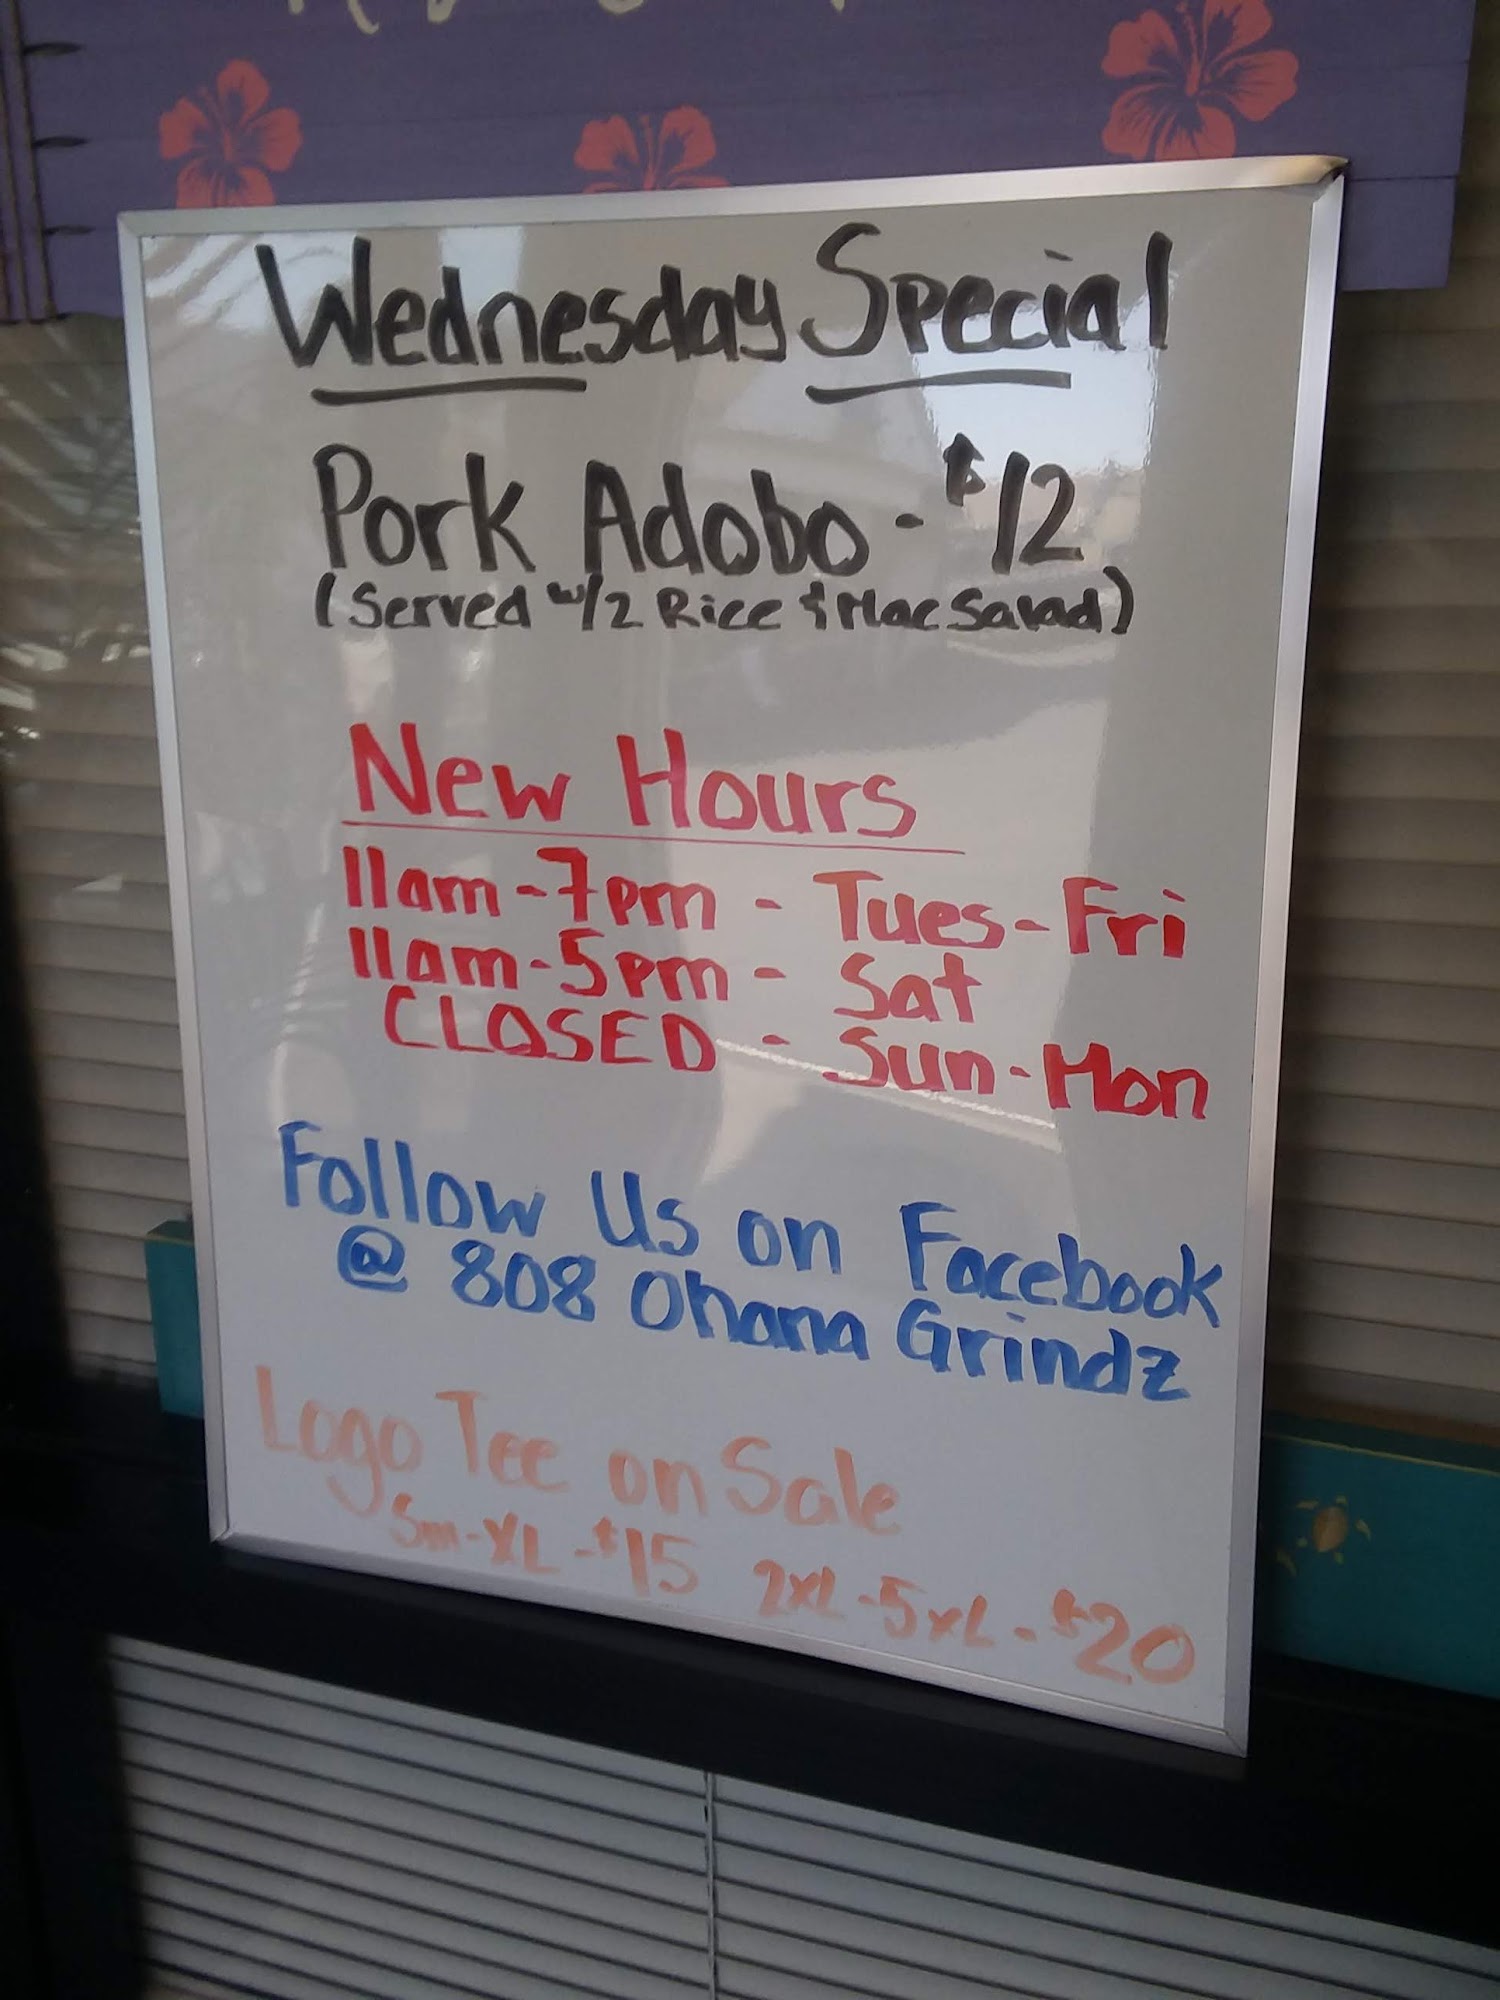 Wednesday Special
Pork Adobo - $12
(Served w/2 Rice & Mac Salad)
New Hours
11am-7pm - Tues-Fri
11am-5pm - Sat
CLOSED - Sun-Mon
Follow Us on Facebook
@ 808 Ohana Grindz
Logo Tee on Sale
Sm-XL-$15 2XL-5XL-$20